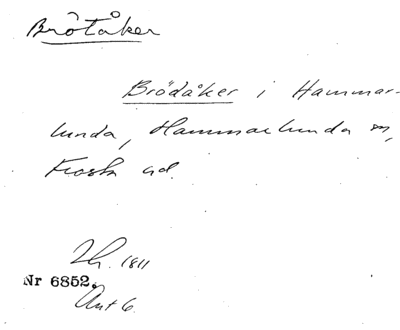 Brötåker
Brödåker i Hammar-
lunda, Hammarlunda sn,
Frosta hd.
Lh. 1811
Nr 6852.
Akt 6